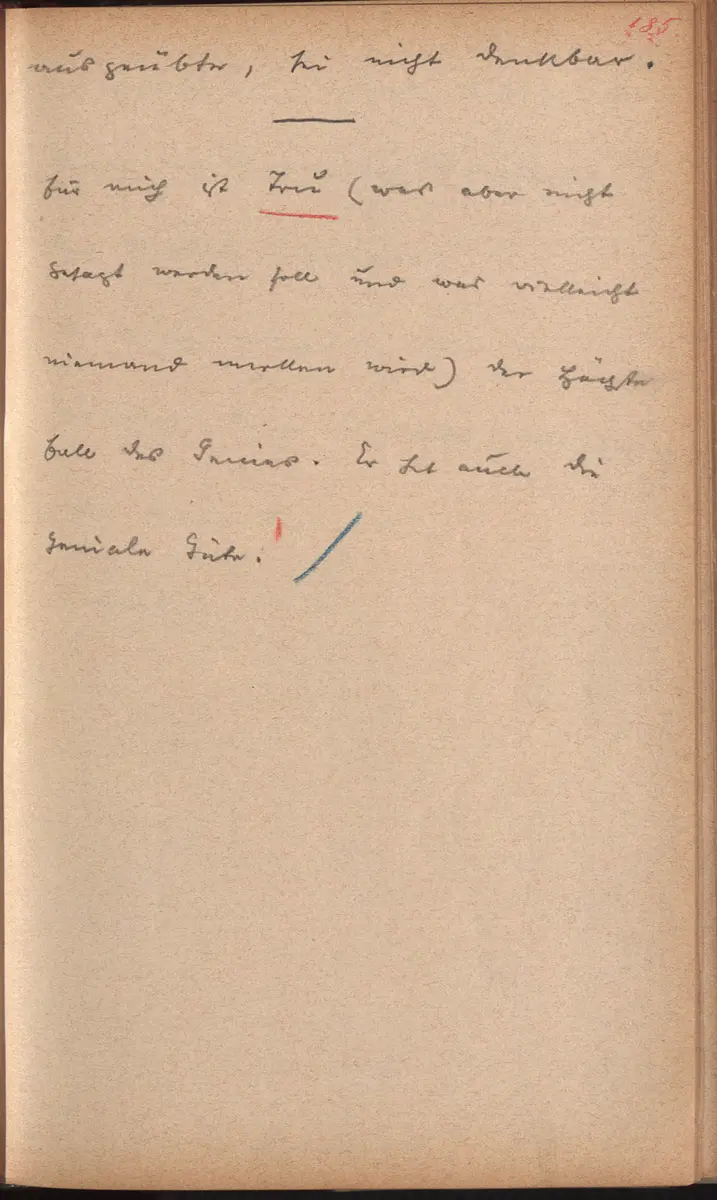 185
ausgeübter, sei nicht denkbar.
für mich ist (was aber nicht
gesagt werden soll und was vielleicht
niemand merken wird) der höchste
Fall des Genies. Er hat auch die
geniale Güte.